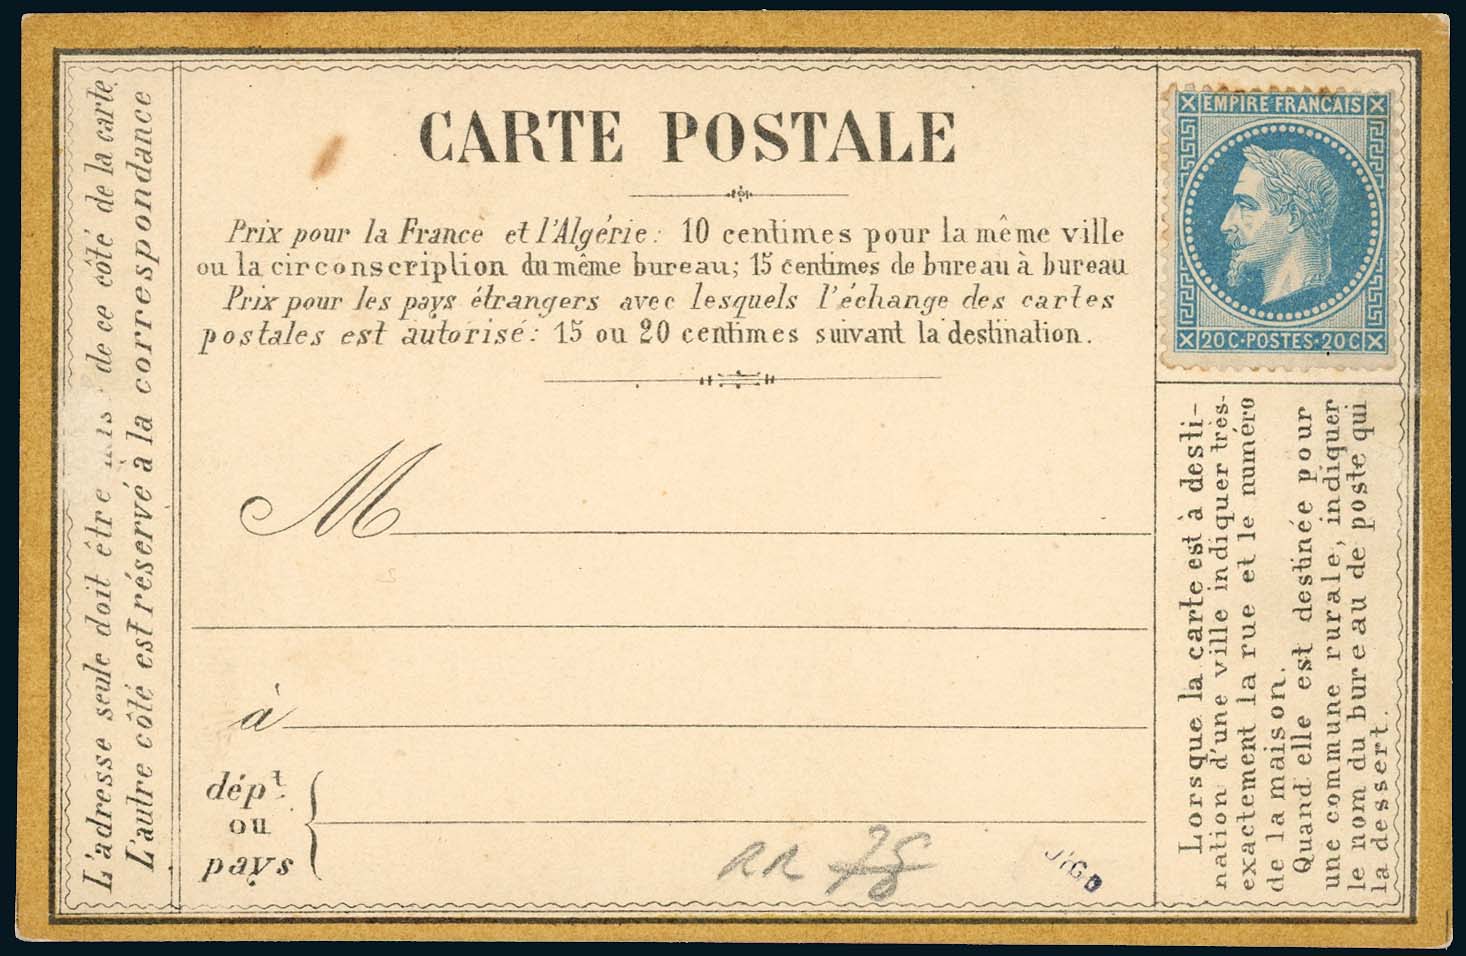 CARTE POSTALE
Prix pour la France et l'Algérie: 10 centimes pour la même ville
ou la circonscription du même bureau; 15 centimes de bureau à bureau
Prix pour les pays étrangers avec lesquels l'échange des cartes
postales est autorisé: 15 ou 20 centimes suivant la destination.
M
à
dépt
ou
pays
L'adresse seule doit être mis de ce côté de la carte
L'autre côté est réservé à la correspondance
EMPIRE FRANCAIS
20 C·POSTES·20 C
Lorsque la carte est à desti-
nation d'une ville indiquer très-
exactement la rue et le numéro
de la maison.
Quand elle est destinée pour
une commune rurale, indiquer
le nom du bureau de poste qui
la dessert.
RR 78